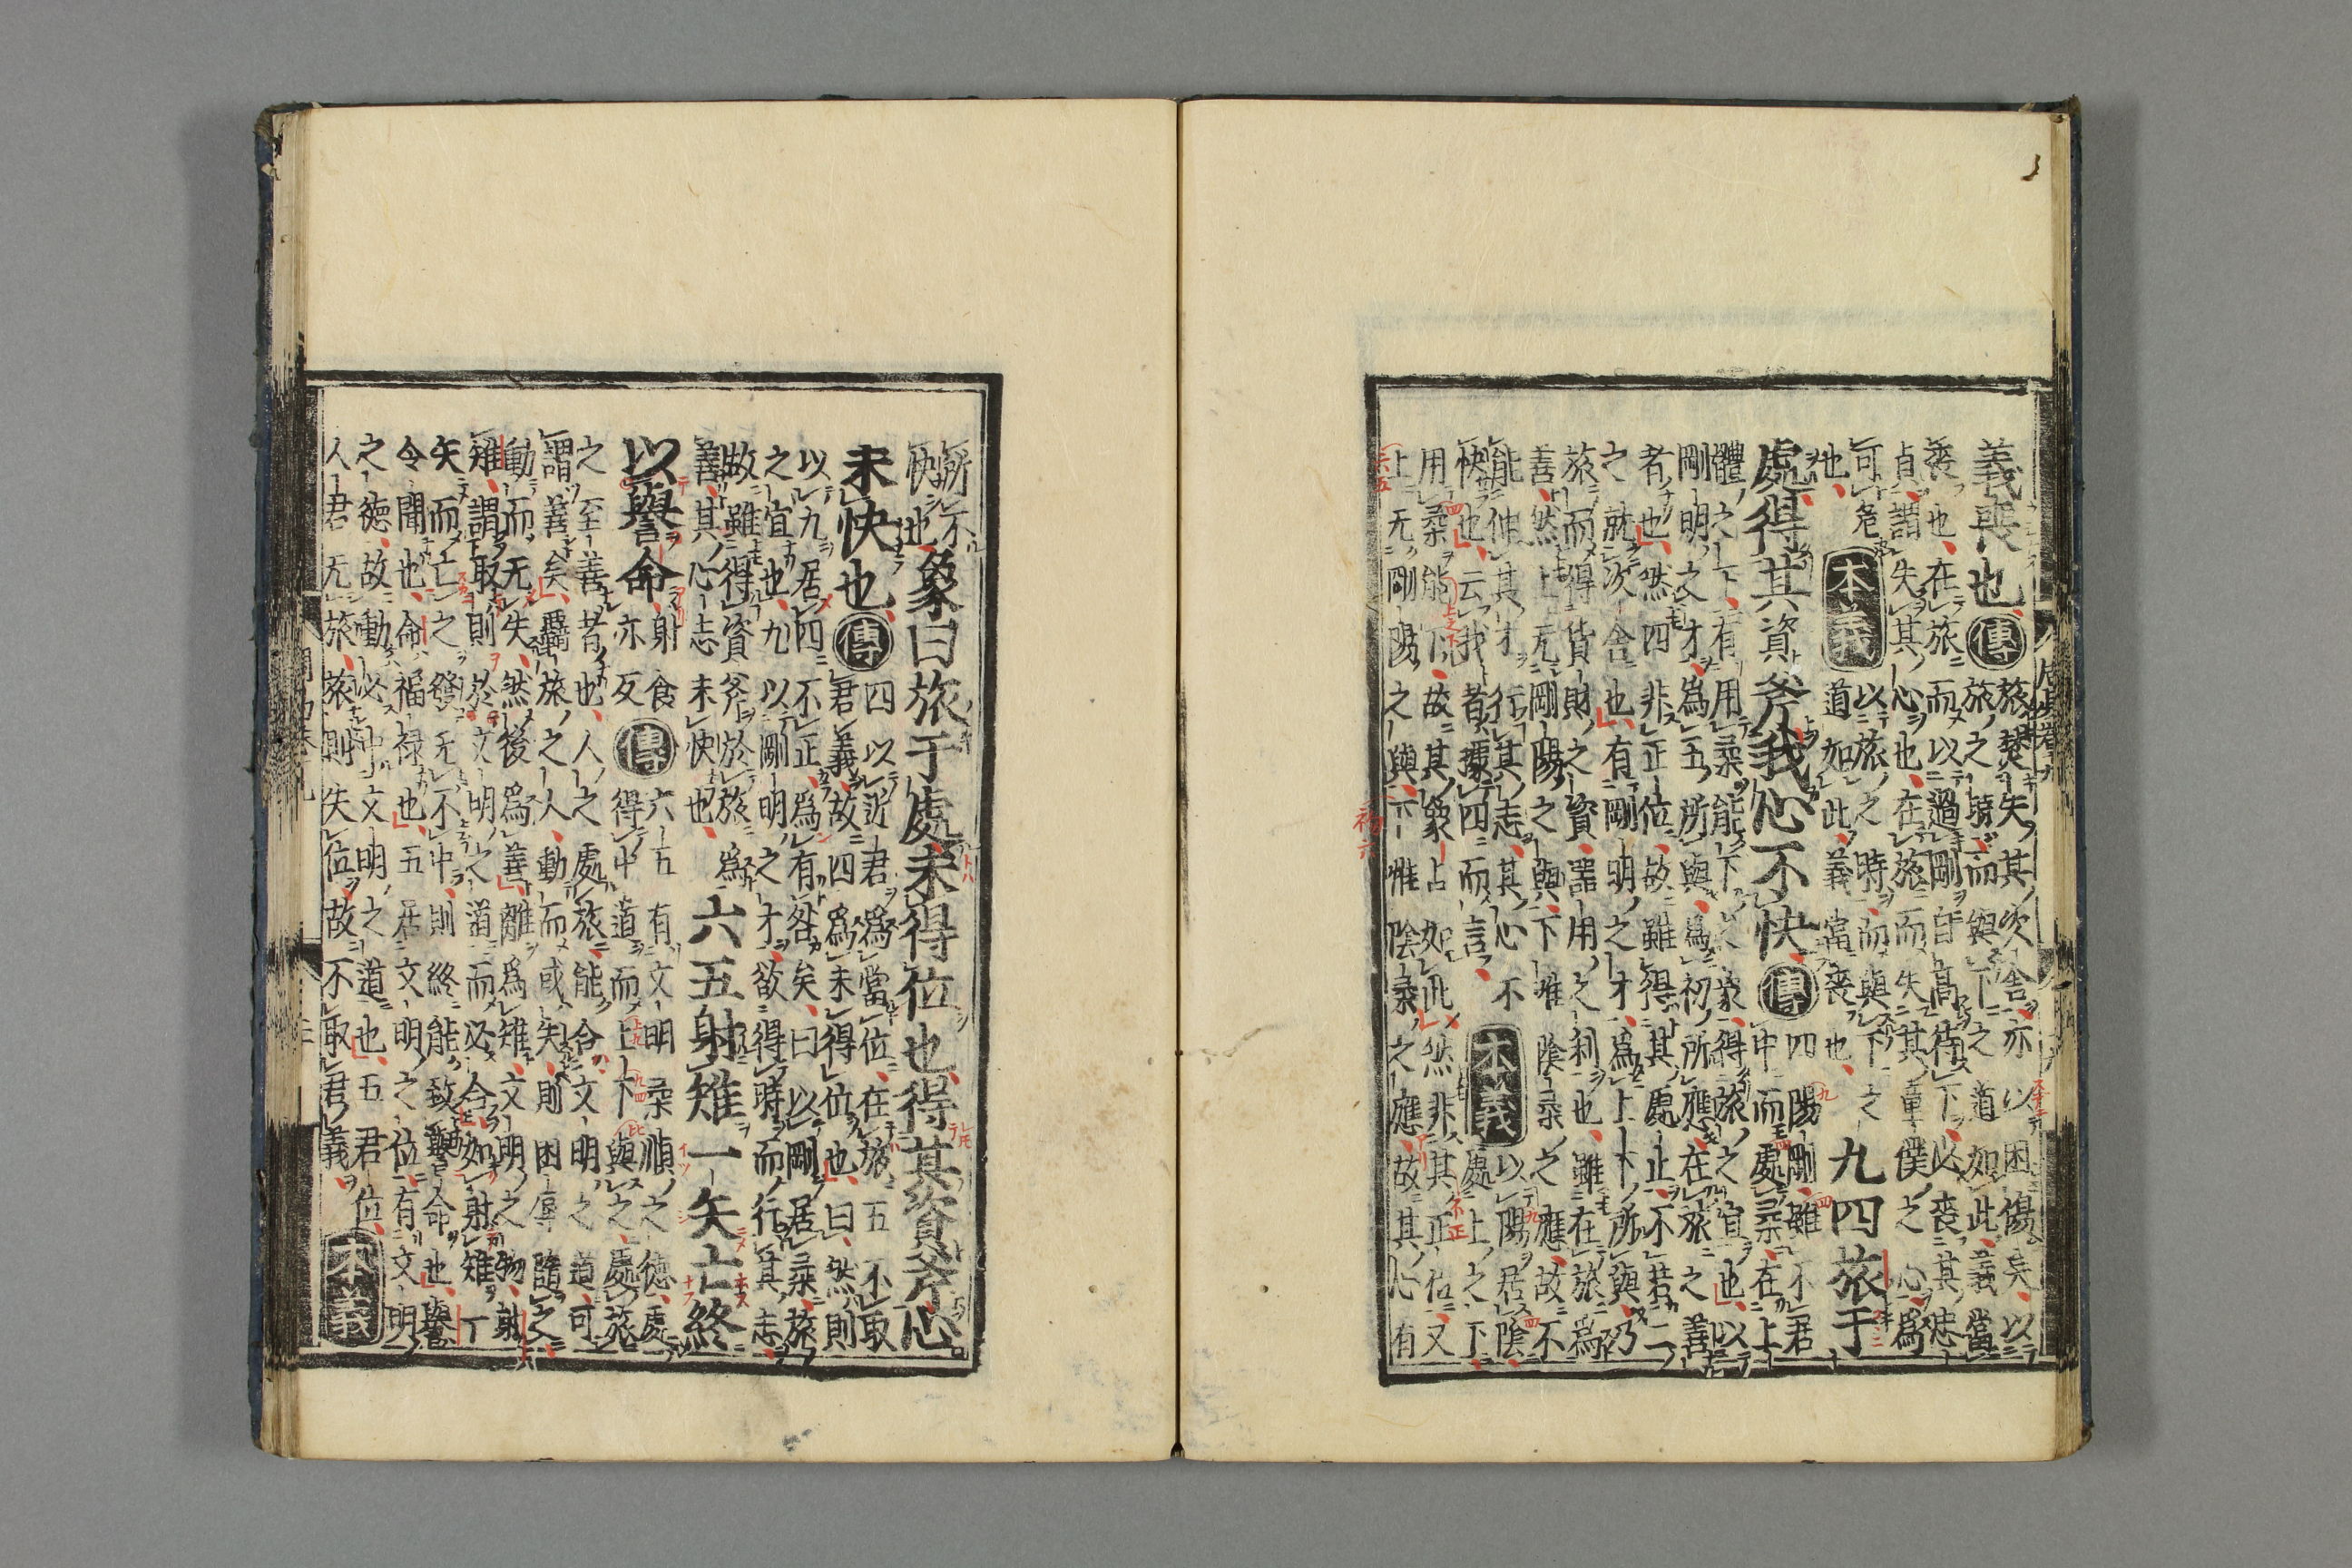 義喪也傳
旅焚失其次舍亦以困傷矣以
旅之時而與下之道如此義當
喪也在旅而以過剛自高待下必喪其忠
貞謂失其心也在旅而失其童僕之心爲
可危
也
本義
以旅之時而與下之
道如此義當喪也
九四旅于
處得其資斧我心不快傳
四陽剛雖不居
中而處柔在上
體之下有用柔能下之象得旅之宜也以
剛明之才爲五所與爲初所應在旅之善
者也然四非正位故雖得其處止不若二
之就次舍也有剛明之才爲上下所與乃
旅而得貨財之資器用之利也雖在旅爲
善然上无剛陽之與下唯陰柔之應故不
能伸其才行其志其心不
快也云我者據四而言
本義
以陽居陰
處上之下
用柔能下故其象占如此然非其正位又
上无剛陽之與下惟陰柔之應故其心有
所不
快也
象曰旅于處未得位也得其資斧心
未快也傳
四以近君爲當位在旅五不取
君義故四爲未得位也曰然則
以九居四不正爲有咎矣曰以剛居柔旅
之宜也九以剛明之才欲得時而行其志
故雖得資斧於旅爲
善其心志未快也
六五射雉一矢亡終
以譽命
射食
亦反
傳
六五有文明柔順之德處
得中道而上下與之處旅
之至善者也人之處旅能合文明之道可
謂善矣羈旅之人動而或失則困辱隨之
動而无失然後爲善離爲雉文明之物射
雉謂取則於文明之道而必合如射雉一
矢而亡之發无不中則終能致譽命也譽
令聞也命福祿也五居文明之位有文明
之德故動必中文明之道也五君位
人君无旅旅則失位故不取君義
本義